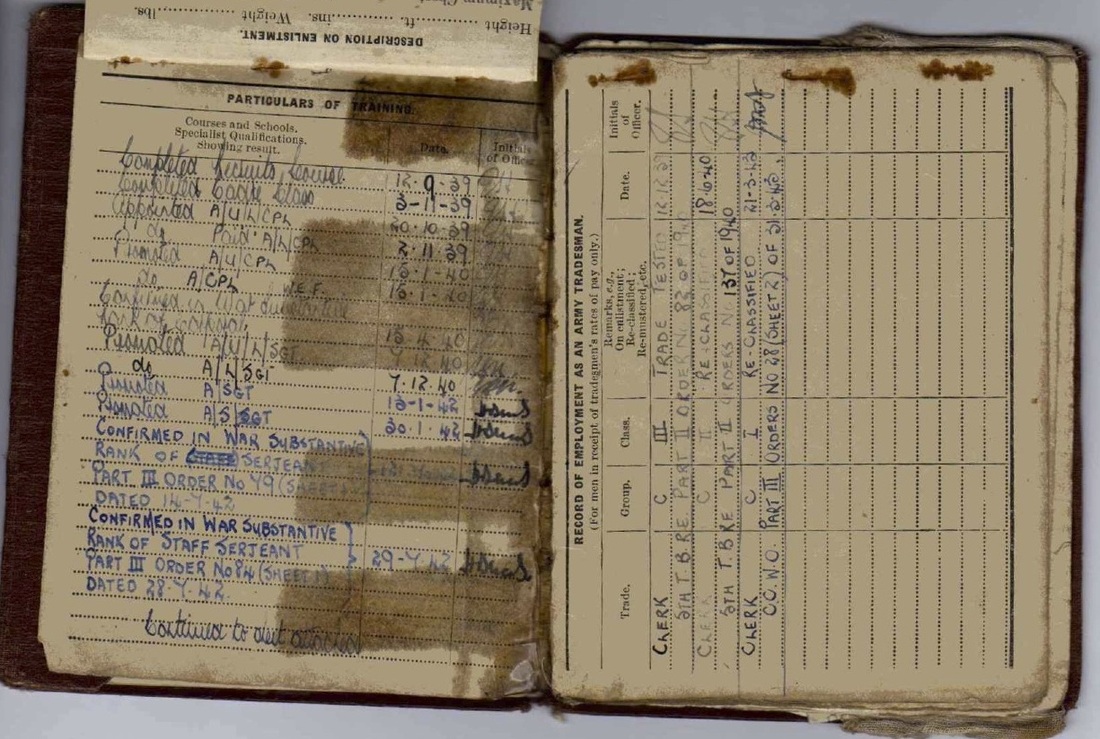 Maximum
Height ft. ins. Weight lbs.
DESCRIPTION ON ENLISTMENT.
PARTICULARS OF TRAINING.
Courses and Schools. Specialist Qualifications. Showing result. Date. Initials of Officer.
Completed Recruits Course 12.9.39
Completed Cadre Class 3-11-39
Appointed A/U/L/CPL 20.10.39
do Paid A/L/CPL 2.11.39
Promoted A/U/CPL 15.1.40
do A/CPL 15.1.40
Confirmed in War Substantive
Rank of 15.4.40
Promoted A/U/L/SGT 7.12.40
do A/L/SGT 7.12.40
Promoted A/SGT 13-1-42
Promoted A/S/SGT 30.1.42
CONFIRMED IN WAR SUBSTANTIVE
RANK OF SERTEANT
PART III ORDER No 79 (SHEET
DATED 14-7-42
CONFIRMED IN WAR SUBSTANTIVE
RANK OF STAFF SERTEANT 29-7-42
PART III ORDER No 84 (SHEET 1)
DATED 28.7.42.
Continued to sheet attached
RECORD OF EMPLOYMENT AS AN ARMY TRADESMAN.
(For men in receipt of tradesmen's rates of pay only.)
Trade. Group. Class. Remarks, e.g., On enlistment; Re-classified; Re-mustered, etc. Date. Initials of Officer.
CLERK C III TRADE TESTED 12.12.39
5TH T.B RE PART II ORDER No 83 OF 1940
CLERK C II RE-CLASSIFIED 18.6.40
5TH T.B RE PART II ORDERS No. 137 OF 1940
CLERK C I RE-CLASSIFIED 21-3-42
PART III ORDERS No 28 (SHEET 2) OF 31.3.42.